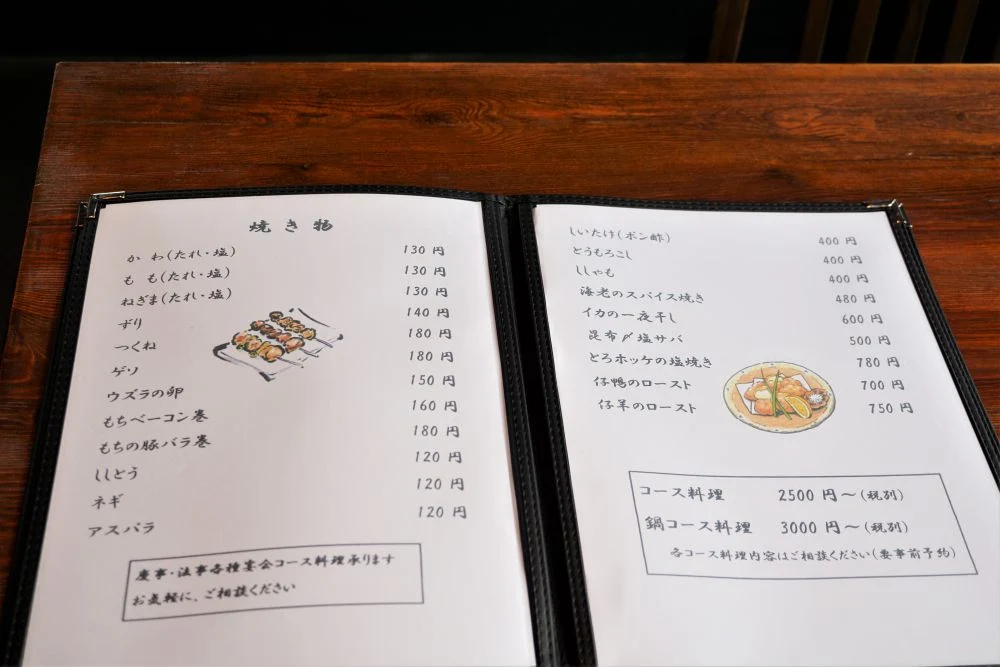 焼き物
かわ(たれ・塩) 130 円
もも(たれ・塩) 130 円
ねぎま(たれ・塩) 130 円
ずり 140 円
つくね 180 円
ゲソ 180 円
ウズラの卵 150 円
もちベーコン巻 160 円
もちの豚バラ巻 180 円
ししとう 120 円
ネギ 120 円
アスパラ 120 円
慶事・法事各種宴会コース料理承ります
お気軽に、ご相談ください
しいたけ(ポン酢) 400 円
とうもろこし 400 円
ししゃも 400 円
海老のスパイス焼き 480 円
イカの一夜干し 600 円
昆布〆塩サバ 500 円
とろホッケの塩焼き 780 円
仔鴨のロースト 700 円
仔羊のロースト 750 円
コース料理 2500 円～(税別)
鍋コース料理 3000 円～(税別)
各コース料理内容はご相談ください(要事前予約)